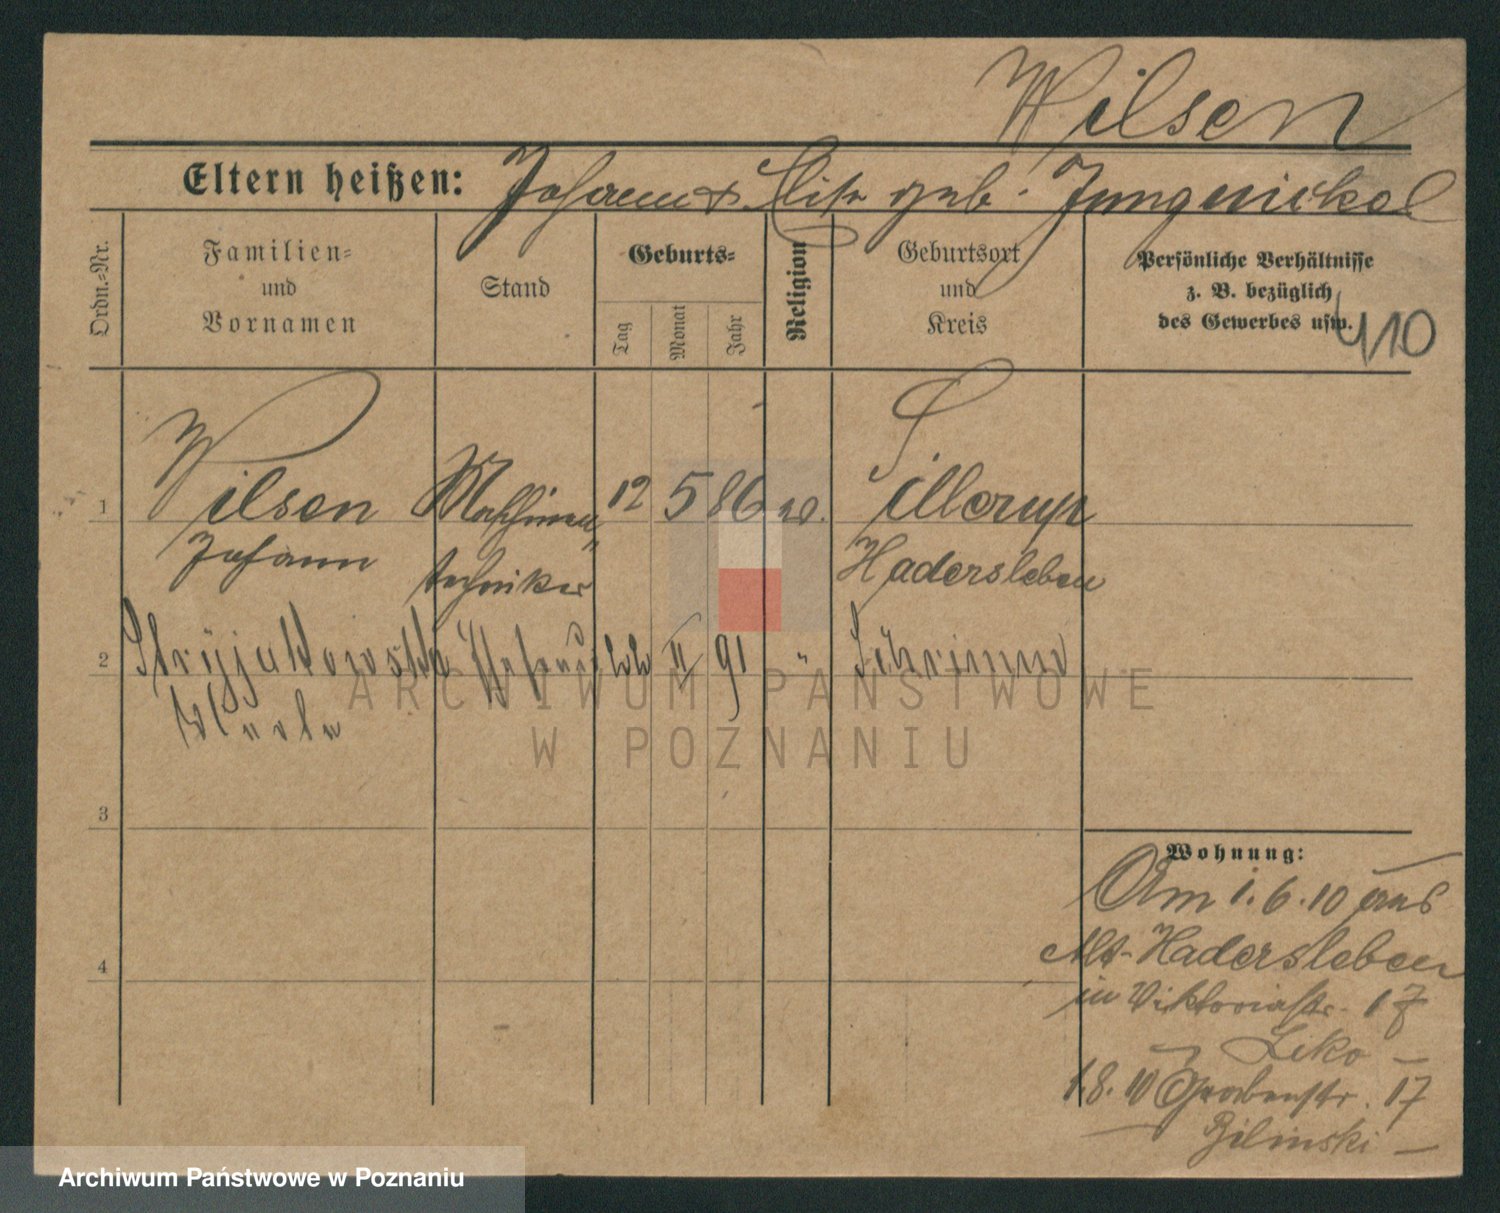 Wilsen
Eltern heißen: Johann & geb. Jungnickel
Ordn.-Nr.
Familien-
und
Vornamen
Stand
Geburts-
Tag
Monat
Jahr
Religion
Geburtsort
und
Kreis
Persönliche Verhältnisse
z. B. bezüglich
des Gewerbes usw.
410
1 Wilsen Maschinen- 12 5 86 ev. Sillerup
Johann techniker Hadersleben
2 II 91 " Schrimm
3
4
Wohnung:
Am 1.6.10 aus
Alt-Hadersleben
in Viktoriastr. 17
Liko
1.8.10 Grabenstr. 17
Bilinski
ARCHIWUM PAŃSTWOWE
W POZNANIU
Archiwum Państwowe w Poznaniu